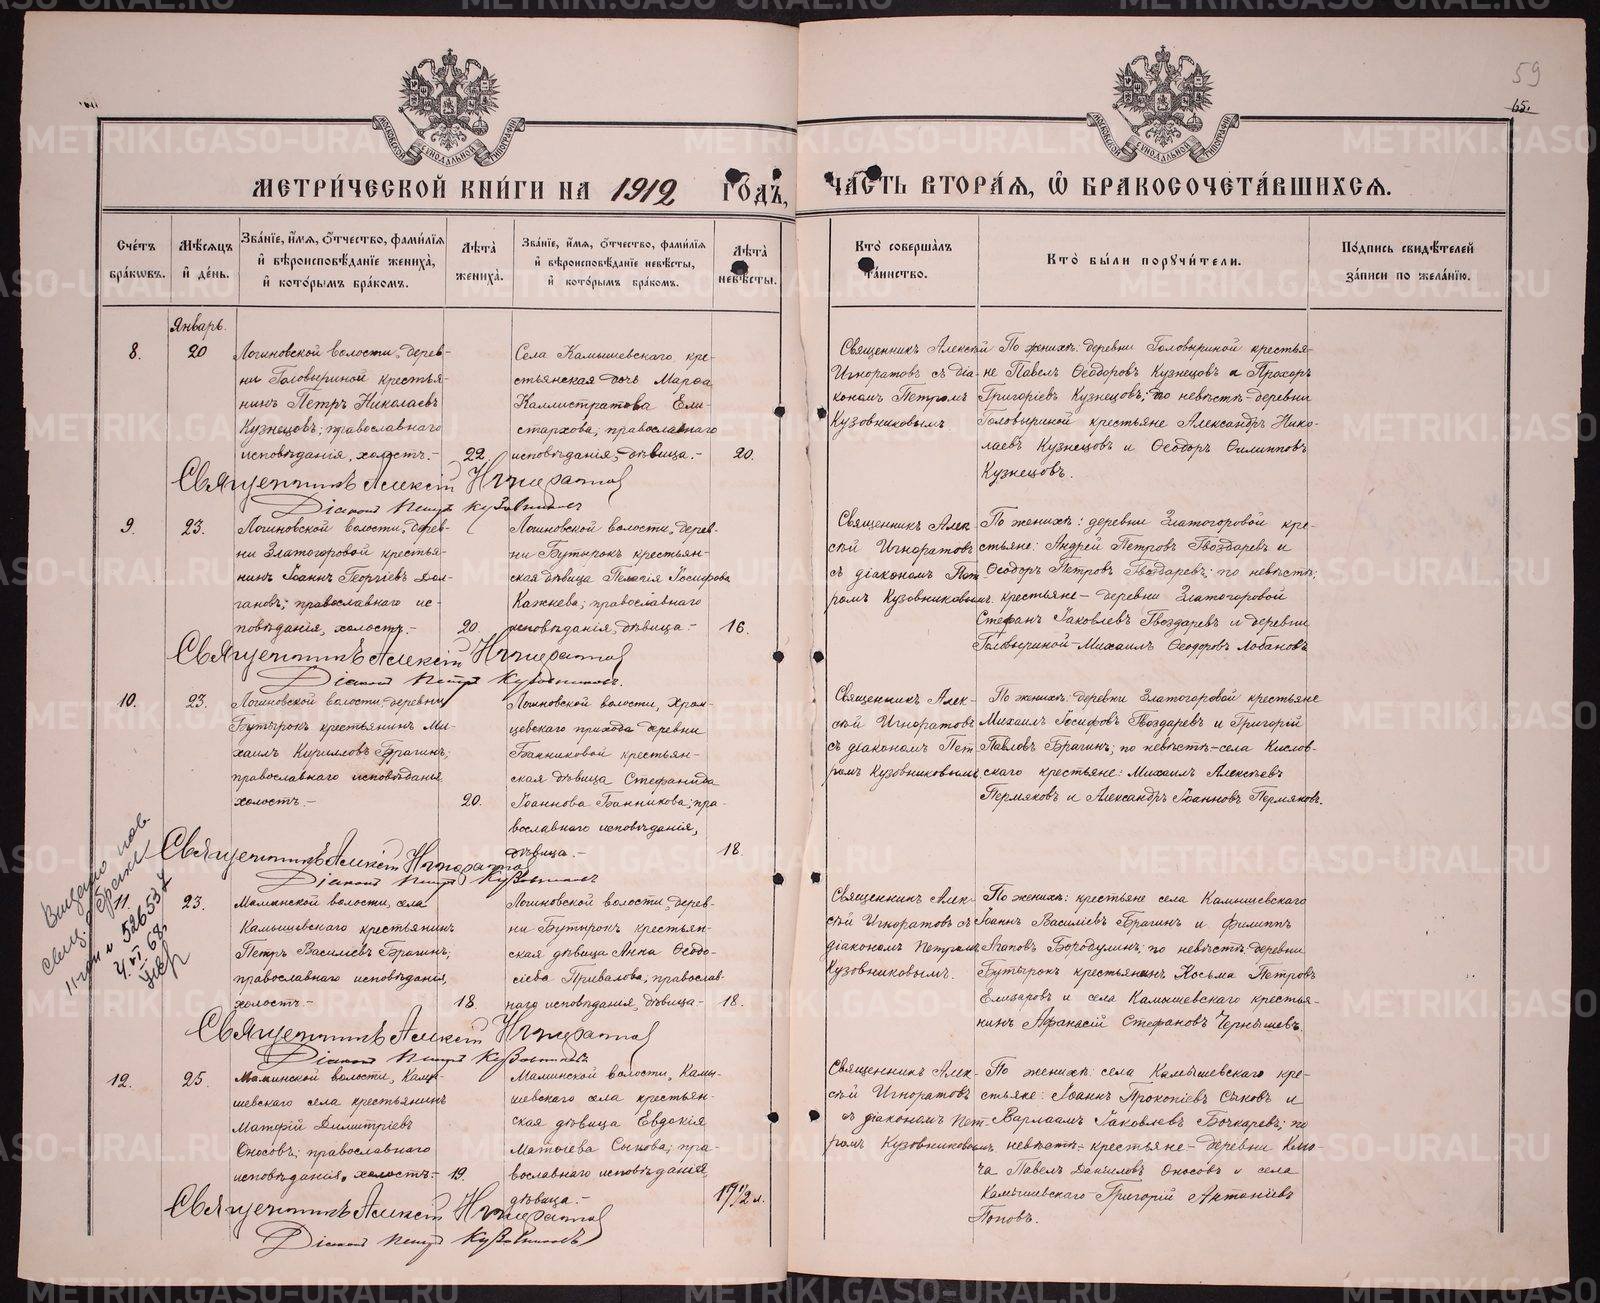 59
65.
МОСКОВСКОЙ СѴНОДАЛЬНОЙ ТИПОГРАФІИ
МОСКОВСКОЙ СѴНОДАЛЬНОЙ ТИПОГРАФІИ
МЕТРИ́ЧЕСКОЙ КНИ́ГИ НА 1912 ГОДЪ, ЧА́СТЬ ВТОРА́Я, Ѡ БРАКОСОЧЕТА́ВШИХСЯ.
Сче́тъ бра́ковъ.
Мѣ́сяцъ и де́нь.
Зва́ніе, и́мя, о́тчество, фами́лія и вѣроисповѣ́даніе жениха̀, и кото́рымъ бра́комъ.
Лѣта̀ жениха̀.
Зва́ніе, и́мя, о́тчество, фами́лія и вѣроисповѣ́даніе невѣ́сты, и кото́рымъ бра́комъ.
Лѣта̀ невѣ́сты.
Кто̀ соверша́лъ та́инство.
Кто̀ бы́ли поручи́тели.
По́дпись свидѣ́телей за́писи по жела́нію.
Январь.
8.
20
Логиновской волости, дерев-
ни Головыриной крестья-
нинъ Петръ Николаевъ
Кузнецовъ; православнаго
исповѣданія, холостъ.-
22.
Села Камышевскаго кре-
стьянская дочь Марѳа
Каллистратова Ели-
стархова, православнаго
исповѣданія, дѣвица.-
20.
Священникъ Алексій
Игноратовъ съ діа-
кономъ Петромъ
Кузовниковымъ
По женихѣ: деревни Головыриной крестья-
не Павелъ Ѳеодоровъ Кузнецовъ и Прохоръ
Григоріевъ Кузнецовъ; по невѣстѣ- деревни
Головыриной крестьяне Александръ Нико-
лаевъ Кузнецовъ и Ѳеодоръ Филипповъ
Кузнецовъ.
Священникъ Алексій Игноратов
Діаконъ Петръ Кузовниковъ
9.
23.
Логиновской волости, дерев-
ни Златогоровой крестья-
нинъ Іоаннъ Георгіевъ Дол-
гановъ; православнаго ис-
повѣданія, холостъ.-
20.
Логиновской волости, дерев-
ни Бутырокъ крестьян-
ская дѣвица Пелагія Іосифова
Кажнева; православнаго
исповѣданія, дѣвица.-
16.
Священникъ Алек-
сѣй Игноратовъ
съ діакономъ Пет-
ромъ Кузовниковымъ.
По женихѣ: деревни Златогоровой кре-
стьяне: Андрей Петровъ Гвоздаревъ и
Ѳеодоръ Петровъ Гвоздаревъ; по невѣстѣ;
крестьяне- деревни Златогоровой
Стефанъ Іаковлевъ Гвоздаревъ и деревни
Головыриной- Михаилъ Ѳеодоровъ Лобановъ
Священникъ Алексій Игноратов
Діаконъ Петръ Кузовниковъ.
10.
23.
Логиновской волости, деревни
Бутырокъ крестьянинъ Ми-
хаилъ Кирилловъ Брагинъ,
православнаго исповѣданія
холостъ.-
20.
Логиновской волости, Храм-
цевскаго прихода деревни
Банниковой крестьян-
ская дѣвица Стефанида
Іоаннова Банникова; пра-
вославнаго исповѣданія,
дѣвица.-
18.
Священникъ Алек-
сѣй Игноратовъ
съ діакономъ Пет-
ромъ Кузовниковымъ
По женихѣ: деревни Златогоровой крестьяне
Михаилъ Іосифовъ Гвоздаревъ и Григорій
Павловъ Брагинъ; по невѣстѣ- села Кислов-
скаго крестьяне: Михаилъ Алексѣевъ
Пермяковъ и Александръ Іоанновъ Пермяковъ.
Священникъ Алексій Игноратов
Діаконъ Петръ Кузовниковъ
11.
23.
Маминской волости, села
Камышевскаго крестьянинъ
Петръ Василіевъ Брагинъ,
православнаго исповѣданія,
холостъ.-
18.
Логиновской волости, дерев-
ни Бутырокъ крестьян-
ская дѣвица Анна Ѳеодо-
сіева Привалова; православ-
наго исповѣданія, дѣвица.-
18.
Священникъ Алек-
сѣй Игноратовъ съ
діакономъ Петромъ
Кузовниковымъ.
По женихѣ: крестьяне села Камышевскаго
Іоаннъ Василіевъ Брагинъ и Филиппъ
Агаповъ Бородулинъ; по невѣстѣ: деревни
Бутырокъ крестьянинъ Косьма Петровъ
Елизаровъ и села Камышевскаго крестья-
нинъ Афанасій Стефановъ Чернышевъ.
Священникъ Алексій Игноратов
Діаконъ Петръ Кузовниковъ.
Выдано пов.
свид. о браке
N 526537
4.VI.68г.
12.
25.
Маминской волости, Камы-
шевскаго села крестьянинъ
Матѳій Димитріевъ
Оносовъ; православнаго
исповѣданія, холостъ.-
19.
Маминской волости, Камы-
шевскаго села крестьян-
ская дѣвица Евдокія
Матѳіева Сыкова; пра-
вославнаго исповѣданія,
дѣвица.-
17 1/2 л.
Священникъ Алек-
сѣй Игноратовъ
съ діакономъ Пет-
ромъ Кузовниковымъ
По женихѣ: села Камышевскаго кре-
стьяне: Іоаннъ Прокопіевъ Сыковъ и
Варлаамъ Іаковлевъ Бочкаревъ; по
невѣстѣ- крестьяне- деревни Клю-
ча Павелъ Даніиловъ Оносовъ и села
Камышевскаго Григорій Антоніевъ
Поповъ.
Священникъ Алексій Игноратов
Діаконъ Петръ Кузовниковъ
METRIKI.GASO-URAL.RU